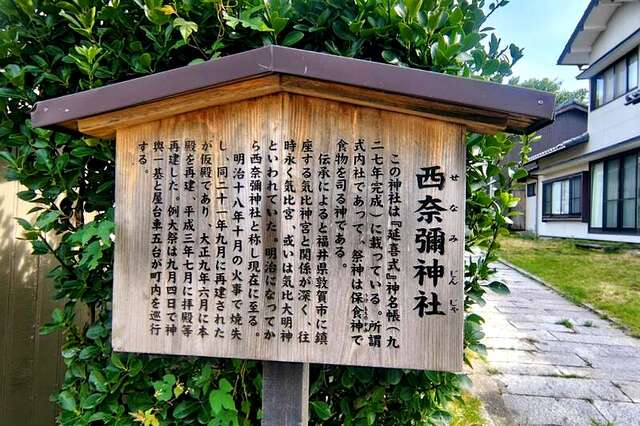 西奈彌神社
せなみじんじゃ
この神社は『延喜式』神名帳（九
二七年完成）に載っている。所謂
式内社であって、祭神は保食神で
食物を司る神である。
伝承によると福井県敦賀市に鎮
座する気比神宮と関係が深く、往
時永く気比宮、或いは気比大明神
といわれていた。明治になってか
ら西奈彌神社と称し現在に至る。
明治十八年十月の火事で焼失
し、同二十一年九月に再建された
が仮殿であり、大正九年六月に本
殿を再建、平成三年七月に拝殿等
再建した。例大祭は九月四日で神
輿一基と屋台車五台が町内を巡行
する。